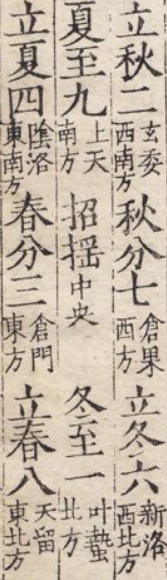 立秋二 玄委西南方 秋分七 倉果西方 立冬六 新洛西北方
夏至九 上天南方 招揺中央 冬至一 叶蟄北方
立夏四 陰洛東南方 春分三 倉門東方 立春八 天留東北方